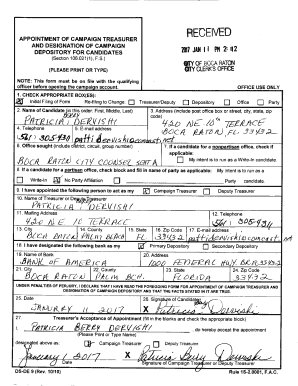 APPOINTMENT OF CAMPAIGN TREASURER
AND DESIGNATION OF CAMPAIGN
DEPOSITORY FOR CANDIDATES
(Section 106.021(1), F.S.)
(PLEASE PRINT OR TYPE)
NOTE: This form must be on file with the qualifying
officer before opening the campaign account.
RECEIVED
2017 JAN 11 PM 2:42
CITY OF BOCA RATON
CITY CLERK'S OFFICE
OFFICE USE ONLY
1. CHECK APPROPRIATE BOX(ES):
Initial Filing of Form Re-filing to Change: Treasurer/Deputy Depository Office Party
2. Name of Candidate (in this order: First, Middle, Last)
BERRY
PATRICIA DERVISHI
3. Address (include post office box or street, city, state, zip code)
420 NE 10th TERRACE
BOCA RATON FL 33432
4. Telephone
5. E-mail address
pattidervishi@comcast.net
6. Office sought (include district, circuit, group number)
BOCA RATON CITY COUNSEL
7. If a candidate for a nonpartisan office, check if applicable:
My intent is to run as a Write-In candidate.
8. If a candidate for a partisan office, check block and fill in name of party as applicable: My intent is to run as a
Write-In No Party Affiliation Party candidate.
9. I have appointed the following person to act as my Campaign Treasurer Deputy Treasurer
10. Name of Treasurer or Deputy Treasurer
PATRICIA DERVISHI
11. Mailing Address
420 NE 10 TERRACE
12. Telephone
13. City
BOCA RATON
14. County
PALM BEACH
15. State
FL
16. Zip Code
33432
17. E-mail address
pattidervishi@comcast.net
18. I have designated the following bank as my Primary Depository Secondary Depository
19. Name of Bank
BANK OF AMERICA
20. Address
FEDERAL HWY BR 33432
21. City
BOCA RATON
22. County
PALM BCH.
23. State
FLORIDA
24. Zip Code
33432
UNDER PENALTIES OF PERJURY, I DECLARE THAT I HAVE READ THE FOREGOING FORM FOR APPOINTMENT OF CAMPAIGN TREASURER AND
DESIGNATION OF CAMPAIGN DEPOSITORY AND THAT THE FACTS STATED IN IT ARE TRUE.
25. Date
JANUARY 11, 2017
26. Signature of Candidate
X Patricia Dervishi
27. Treasurer's Acceptance of Appointment (fill in the blanks and check the appropriate block)
I, PATRICIA BERRY DERVISHI, do hereby accept the appointment
(Please Print or Type Name)
designated above as: Campaign Treasurer Deputy Treasurer.
2017
X Patricia Berry Dervishi
Date
Signature of Campaign Treasurer or Deputy Treasurer
DS-DE 9 (Rev. 10/10)
Rule 1S-2.0001, F.A.C.